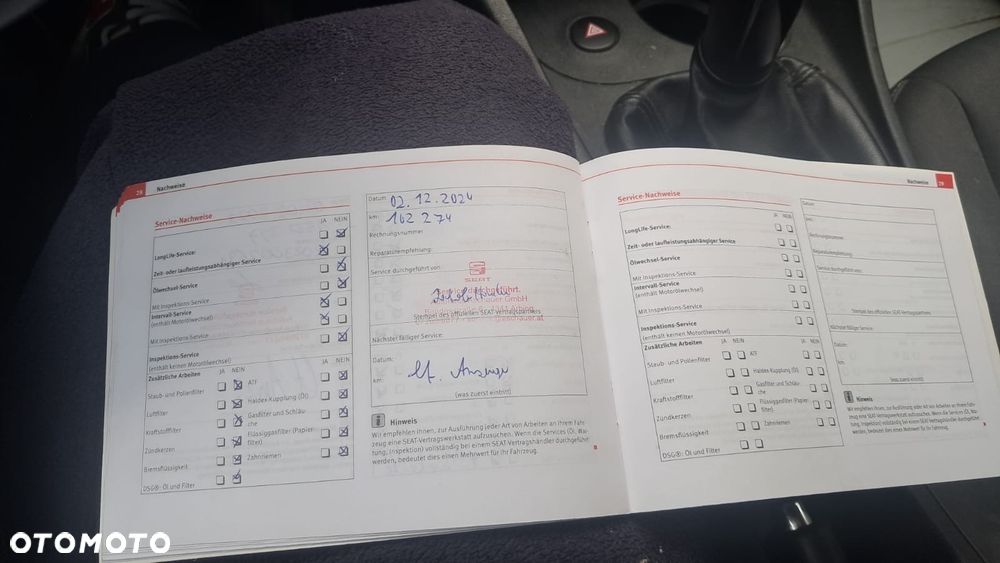 28 Nachweise
Service-Nachweise
JA NEIN
LongLife-Service:
Zeit- oder laufleistungsabhängiger Service
Ölwechsel-Service
Mit Inspektions-Service
Intervall-Service
(enthält Motorölwechsel)
Mit Inspektions-Service
Inspektions-Service
(enthält keinen Motorölwechsel)
Zusätzliche Arbeiten JA NEIN JA NEIN
Staub- und Pollenfilter ATF
Luftfilter Haldex Kupplung (Öl)
Kraftstofffilter Gasfilter und Schläuche
Zündkerzen Flüssiggasfilter (Papierfilter)
Bremsflüssigkeit Zahnriemen
DSG®: Öl und Filter
Datum: 02.12.2024
km: 162 274
Rechnungsnummer:
Reparaturempfehlung:
Service durchgeführt von:
SEAT
Service durchgeführt.
Stempel des offiziellen SEAT-Vertragspartners
Nächster fälliger Service:
Datum:
km:
lt. Anzeige
(was zuerst eintritt)
Hinweis
Wir empfehlen Ihnen, zur Ausführung jeder Art von Arbeiten an Ihrem Fahr-
zeug eine SEAT-Vertragswerkstatt aufzusuchen. Wenn die Services (Öl, War-
tung, Inspektion) vollständig bei einem SEAT-Vertragshändler durchgeführt
werden, bedeutet dies einen Mehrwert für Ihr Fahrzeug.
Nachweise 29
Service-Nachweise
JA NEIN
LongLife-Service:
Zeit- oder laufleistungsabhängiger Service
Ölwechsel-Service
Mit Inspektions-Service
Intervall-Service
(enthält Motorölwechsel)
Mit Inspektions-Service
Inspektions-Service
(enthält keinen Motorölwechsel)
Zusätzliche Arbeiten JA NEIN JA NEIN
Staub- und Pollenfilter ATF
Luftfilter Haldex Kupplung (Öl)
Kraftstofffilter Gasfilter und Schläu-
che
Zündkerzen Flüssiggasfilter (Papier-
filter)
Bremsflüssigkeit Zahnriemen
DSG®: Öl und Filter
Datum:
km:
Rechnungsnummer:
Reparaturempfehlung:
Service durchgeführt von:
Stempel des offiziellen SEAT-Vertragspartners
Nächster fälliger Service:
Datum:
km:
(was zuerst eintritt)
Hinweis
Wir empfehlen Ihnen, zur Ausführung jeder Art von Arbeiten an Ihrem Fahr-
zeug eine SEAT-Vertragswerkstatt aufzusuchen. Wenn die Services (Öl, War-
tung, Inspektion) vollständig bei einem SEAT-Vertragshändler durchgeführt
werden, bedeutet dies einen Mehrwert für Ihr Fahrzeug.
OTOMOTO